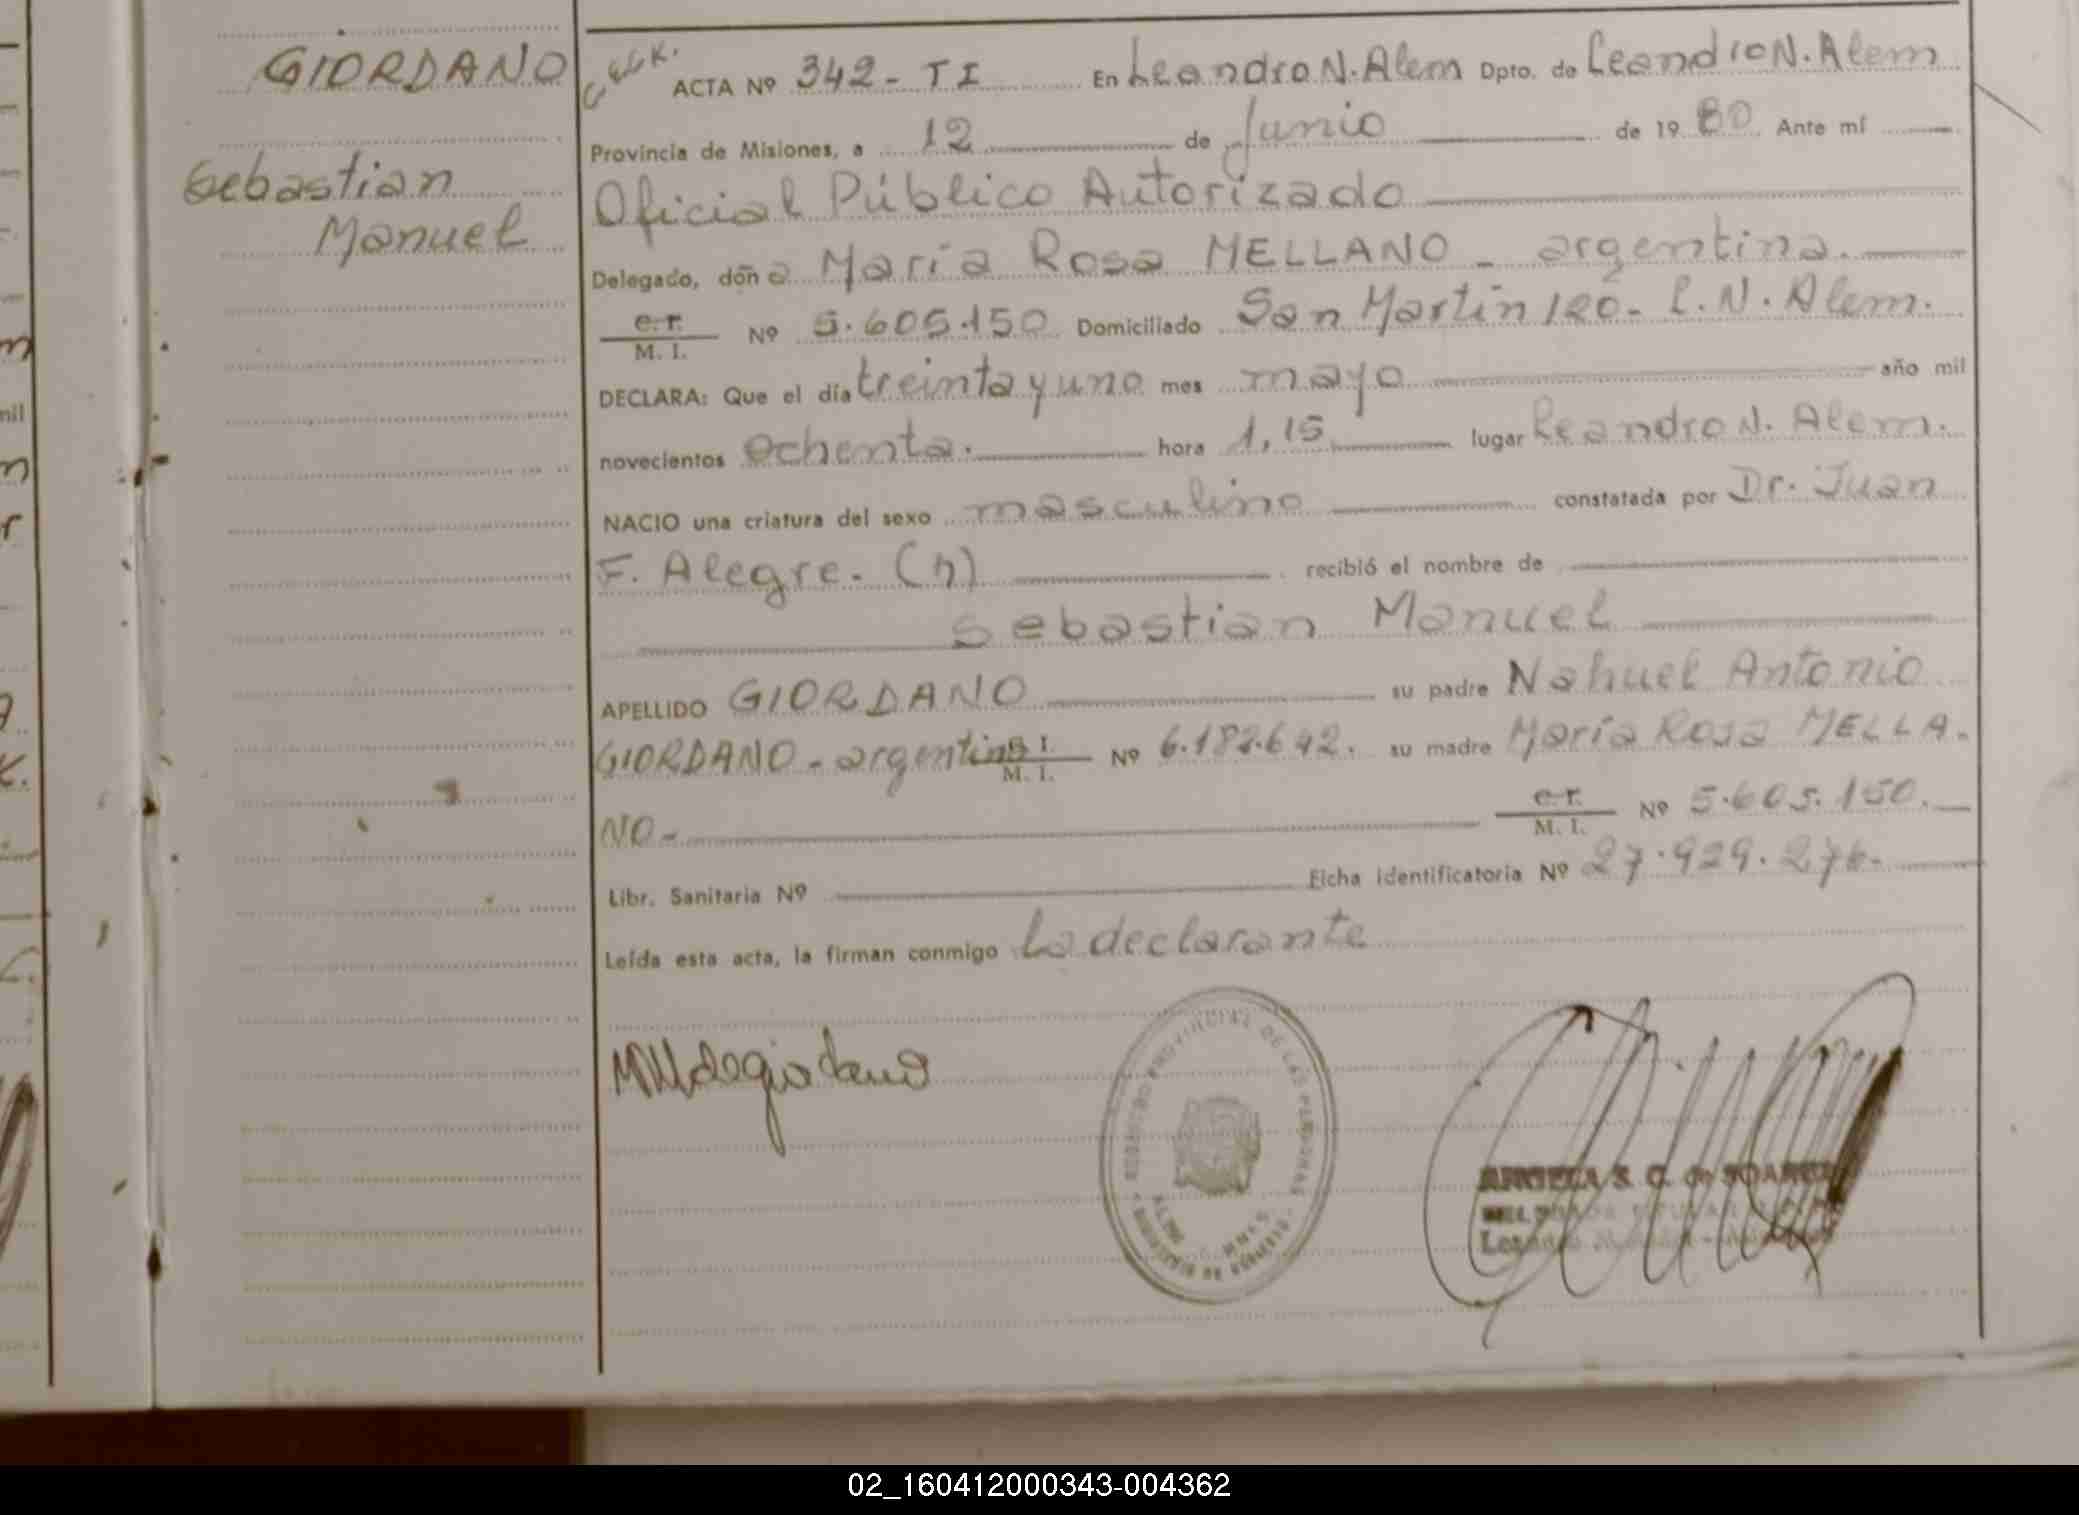 GIORDANO
Sebastian
Manuel
ACTA Nº 342-TI En Leandro N. Alem Dpto. de Leandro N. Alem
Provincia de Misiones, a 12 de Junio de 1980 Ante mí
Oficial Público Autorizado
Delegado, doña María Rosa MELLANO - argentina.
C. I.
M. I. Nº 5.605.150 Domiciliado San Martín 120- L. N. Alem.
DECLARA: Que el día treinta y uno mes mayo año mil
novecientos ochenta. hora 1,15 lugar Leandro N. Alem.
NACIO una criatura del sexo masculino constatada por Dr. Juan
F. Alegre. (h) recibió el nombre de
Sebastian Manuel
APELLIDO GIORDANO su padre Nahuel Antonio
GIORDANO - argentino C. I.
M. I. Nº 6.182.642. su madre María Rosa MELLA-
NO- C. I.
M. I. Nº 5.605.150.
Libr. Sanitaria Nº Ficha identificatoria Nº 27.929.276.
Leída esta acta, la firman conmigo La declarante
REGISTRO PROVINCIAL DE LAS PERSONAS
ALEM
MNES
MINISTERIO DE GOBIERNO
S. C. de SOAREZ
02_160412000343-004362